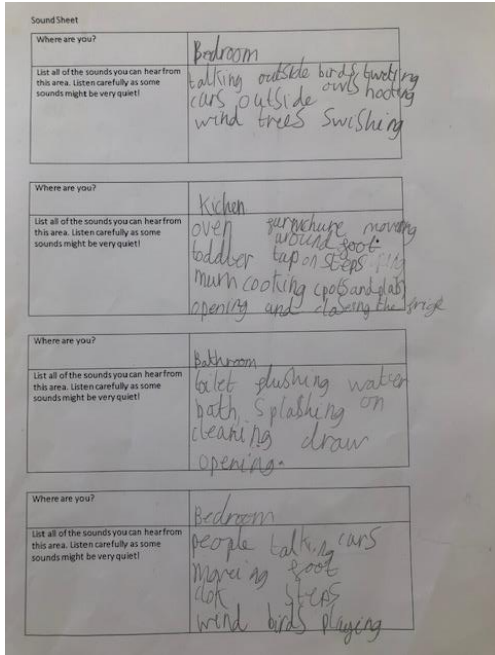 Sound Sheet
Where are you?
Bedroom
List all of the sounds you can hear from
this area. Listen carefully as some
sounds might be very quiet!
talking outside birds tweting
cars outside owls hooting
wind trees swishing
Where are you?
Kichen
List all of the sounds you can hear from
this area. Listen carefully as some
sounds might be very quiet!
oven furnichure moving
around foot
toddler tap on steps
mum cooking (pots and
opening and the frige
Where are you?
Bathroom
List all of the sounds you can hear from
this area. Listen carefully as some
sounds might be very quiet!
toilet flushing water
bath splashing on
cleaning draw
opening.
Where are you?
Bedroom
List all of the sounds you can hear from
this area. Listen carefully as some
sounds might be very quiet!
people talking cars
foot
clok steps
wind birds playing